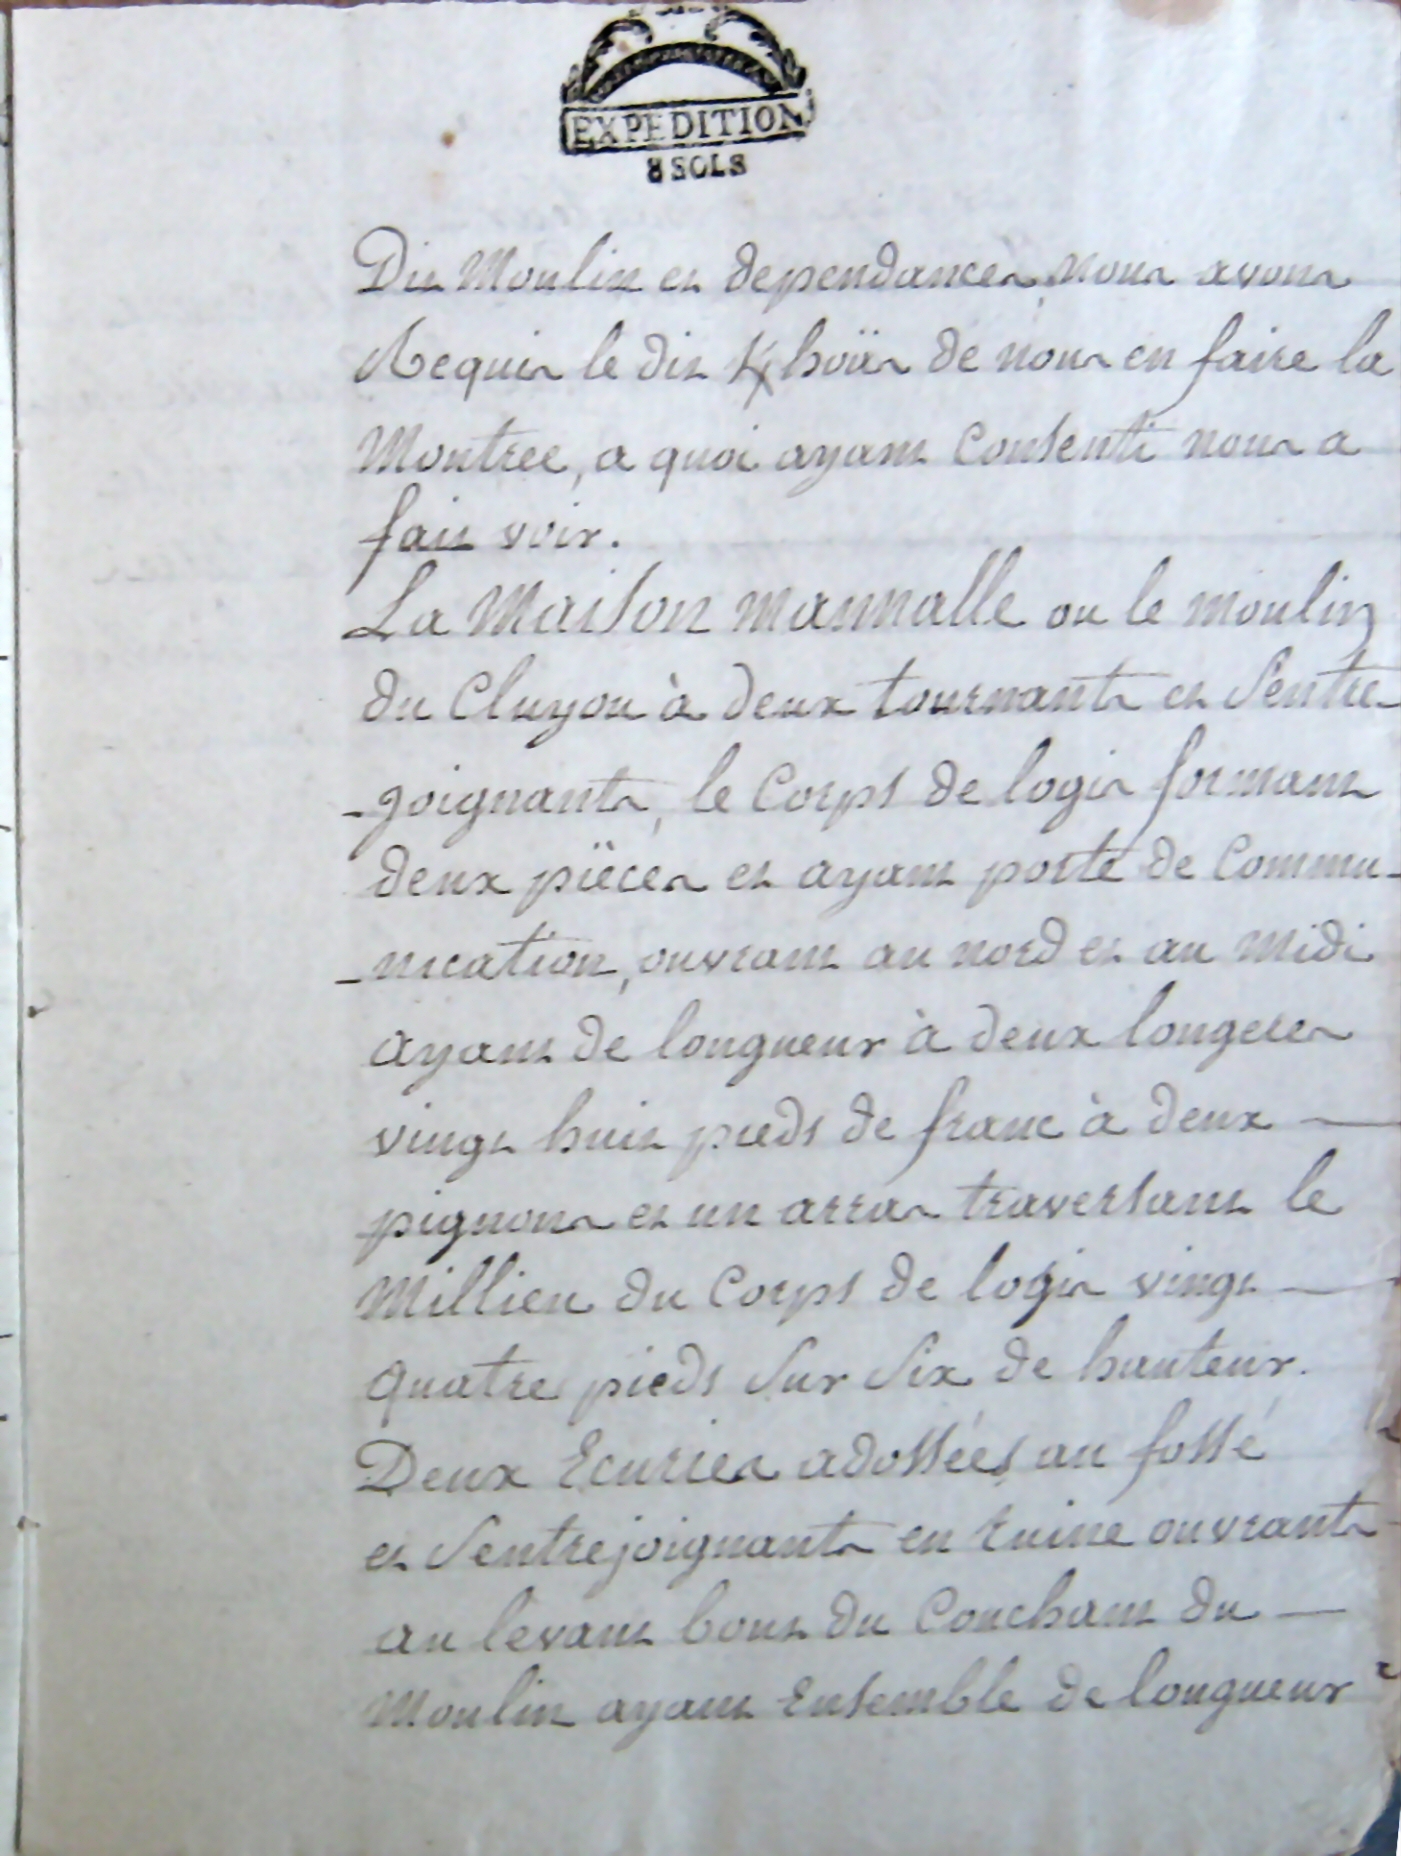 EXPEDITION
8 SOLS
Dit Moulin et dependances, nous avons
Requis le dit hoüs de nous en faire la
Montree, a quoi ayant Consenti nous a
fait voir.
La Maison mannalle ou le moulin
du Cluyou à deux tournants et Sentre-
-joignants, le Corps de logis formant
deux piëces et ayant porte de Commu-
-nication, ouvrant au nord et au midi
ayant de longueur à deux longeres
vingt huit pieds de franc à deux —
pignons et un arras traversant le
Millieu du Corps de logis vingt —
quatre pieds Sur Six de hauteur.
Deux Ecuries adossées au fossé
et Sentrejoignants en ruine ouvrants
au levant bout du Couchant du —
Moulin ayant Ensemble de longueur